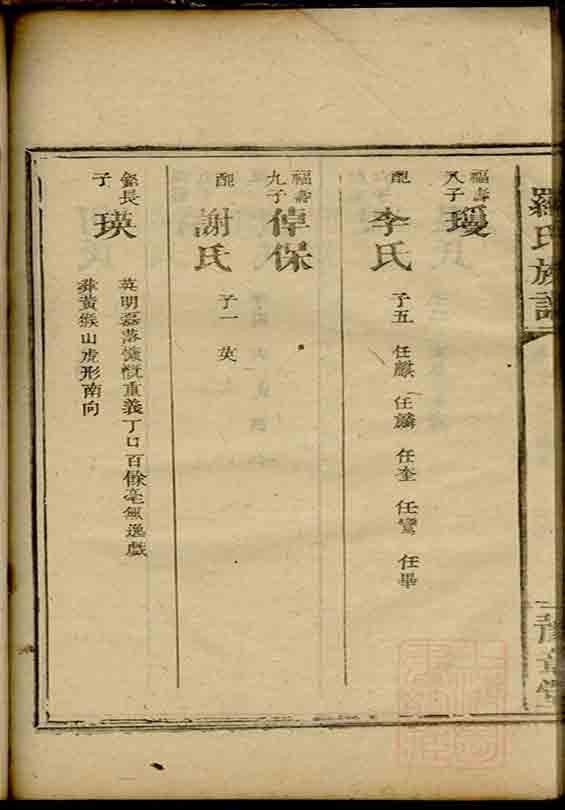 羅氏族譜
豫章堂
福壽八子
瓊
配
李氏
子五 任麒 任麟 任奎 任鸞 任畢
福壽九子
倖保
配
謝氏
子一 英
銘長子
瑛
英明磊落慷慨重義丁口百餘毫無逸戲
葬黃猴山虎形南向